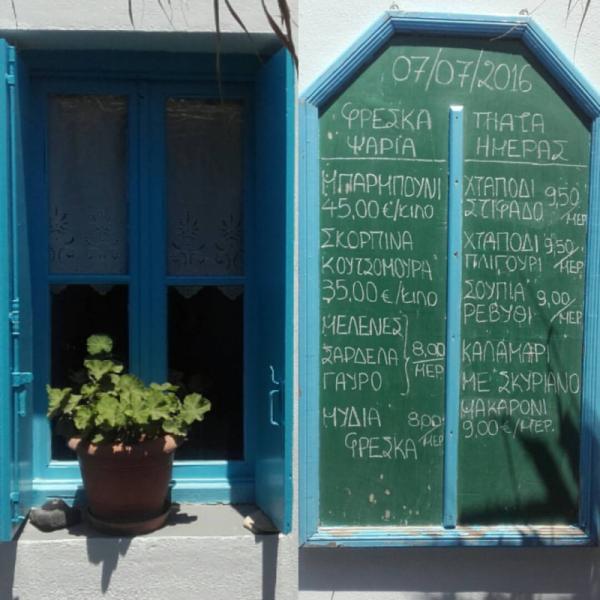 07/07/2016
ΦΡΕΣΚΑ
ΨΑΡΙΑ
ΜΠΑΡΜΠΟΥΝΙ
45,00€/κιλο
ΣΚΟΡΠΙΝΑ
ΚΟΥΤΣΟΜΟΥΡΑ
35,00€/κιλο
ΜΕΛΕΝΕΣ
ΣΑΡΔΕΛΑ 8,00/ΜΕΡ.
ΓΑΥΡΟ
ΜΥΔΙΑ 8,00/ΜΕΡ
ΦΡΕΣΚΑ
ΠΙΑΤΑ
ΗΜΕΡΑΣ
ΧΤΑΠΟΔΙ 9,50
ΣΤΙΦΑΔΟ /ΜΕΡ
ΧΤΑΠΟΔΙ 9,50
ΠΛΙΓΟΥΡΙ /ΜΕΡ.
ΣΟΥΠΙΑ 9,00
ΡΕΒΥΘΙ /ΜΕΡ.
ΚΑΛΑΜΑΡΙ
ΜΕ ΣΚΥΡΙΑΝΟ
ΜΑΚΑΡΟΝΙ
9,00€/ΜΕΡ.